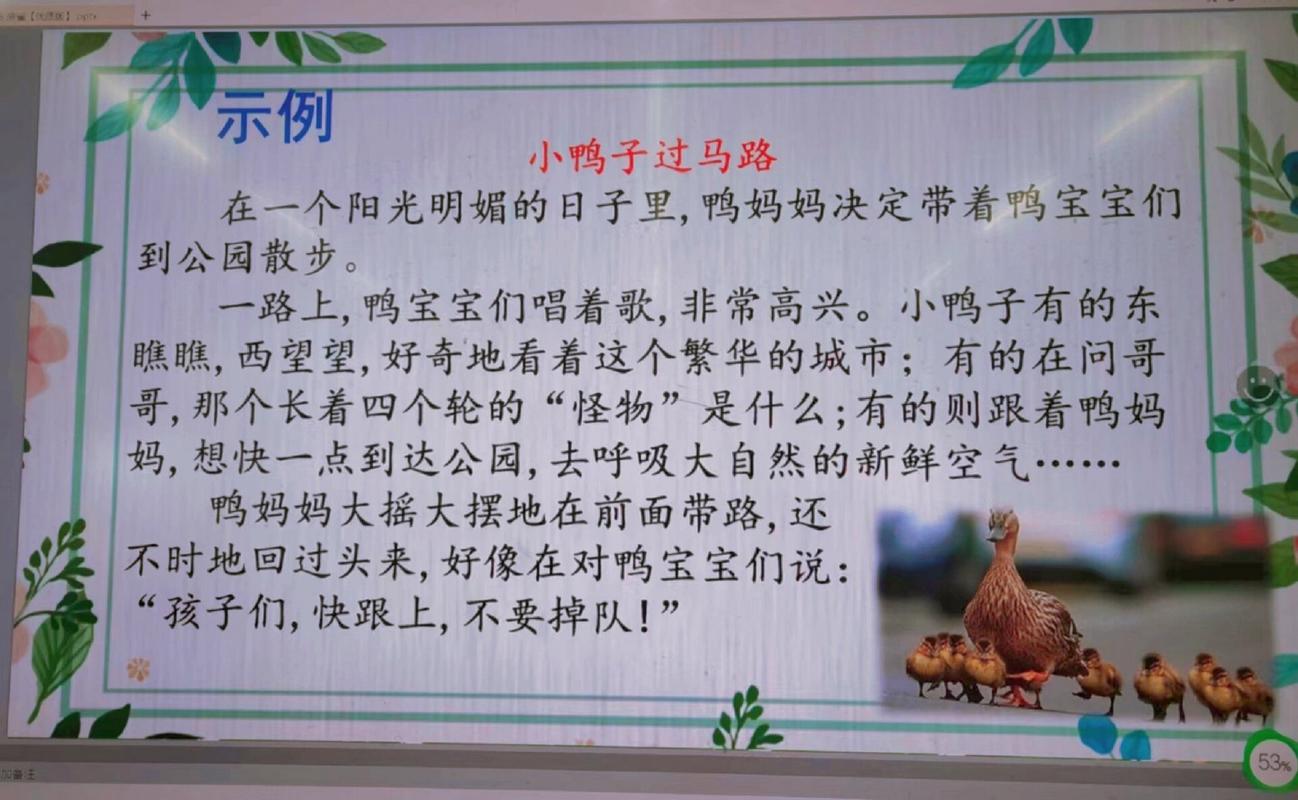 +
示例
小鸭子过马路
在一个阳光明媚的日子里,鸭妈妈决定带着鸭宝宝们
到公园散步。
一路上,鸭宝宝们唱着歌,非常高兴。小鸭子有的东
瞧瞧,西望望,好奇地看着这个繁华的城市；有的在问哥
哥,那个长着四个轮的“怪物”是什么;有的则跟着鸭妈
妈,想快一点到达公园,去呼吸大自然的新鲜空气……
鸭妈妈大摇大摆地在前面带路,还
不时地回过头来,好像在对鸭宝宝们说：
“孩子们,快跟上,不要掉队!”
53%
加备注